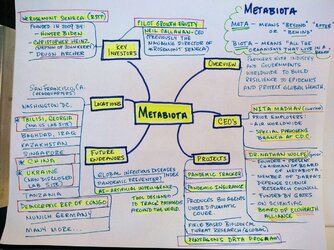 METABIOTA
META - MEANS "BEYOND" AFTER
OR "BEHIND"
BIOTA - MEANS "ALL THE
ORGANISMS THAT LIVE IN A
ROSEMONT SENECA (RSTP)
FOUNDED IN 2009 BY
- HUNTER BIDEN
- CHRISTOPHER HEINZ
(STEPSON OF JOHN KERRY)
- DEVON ARCHER
KEY
INVESTORS
PILOT GROWTH EQUITY
NEIL CALLAHAN - CEO
(PREVIOUSLY THE
MANAGING DIRECTOR OF
ROSEMONT SENECA)
OVERVIEW
PARTNERS WITH INDUSTRY
AND GOVERNMENTS
WORLDWIDE TO BUILD
RESILIENCE TO EPIDEMICS
AND PROTECT GLOBAL HEALTH
SAN FRANCISCO, CA
(HEADQUARTERS)
WASHINGTON DC.
TBILISI, GEORGIA
(BIO U.S. LAB SITE)
BAGHDAD, IRAQ
KAZAKHSTAN
SINGAPORE
CHINA
UKRAINE
(NON DISCLOSED
LAB SITE)
TANZANIA
DEMOCRATIC REP OF CONGO
MUNICH GERMANY
MANY MORE...
LOCATIONS
METABIOTA
CEO'S
NITA MADHAV (CURRENT)
PRIOR EMPLOYERS:
- AIR WORLDWIDE
- SPECIAL PATHOGENS
BRANCH AT C.D.C.
DR. NATHAN WOLFE
- FOUNDER + PRESENT
CHAIRMAN OF BOARD
- MEMBER OF DARPA'S
DEFENSE SCIENCE
RESEARCH COUNCIL
- FUNDED BY GATES
- ON SCIENTIFIC
BOARD OF
ECOHEALTH ALLIANCE
FUTURE
ENDEAVORS
GLOBAL INFECTIOUS DISEASES
PANDEMIC PREVENTER? INDEX
AI - ARTIFICIAL INTELLIGENCE
TOOL DESIGNED
TO TRACE PATHOGENS
AROUND THE WORLD.
PROJECTS
PANDEMIC TRACKER
PANDEMIC INSURANCE
PRODUCES BIO AGENTS
UNDER DIPLOMATIC
COVER
FIELD BASED BIOLOGICAL
THREAT RESEARCH (GLOBAL)
PENTAGON'S DATA PROGRAM